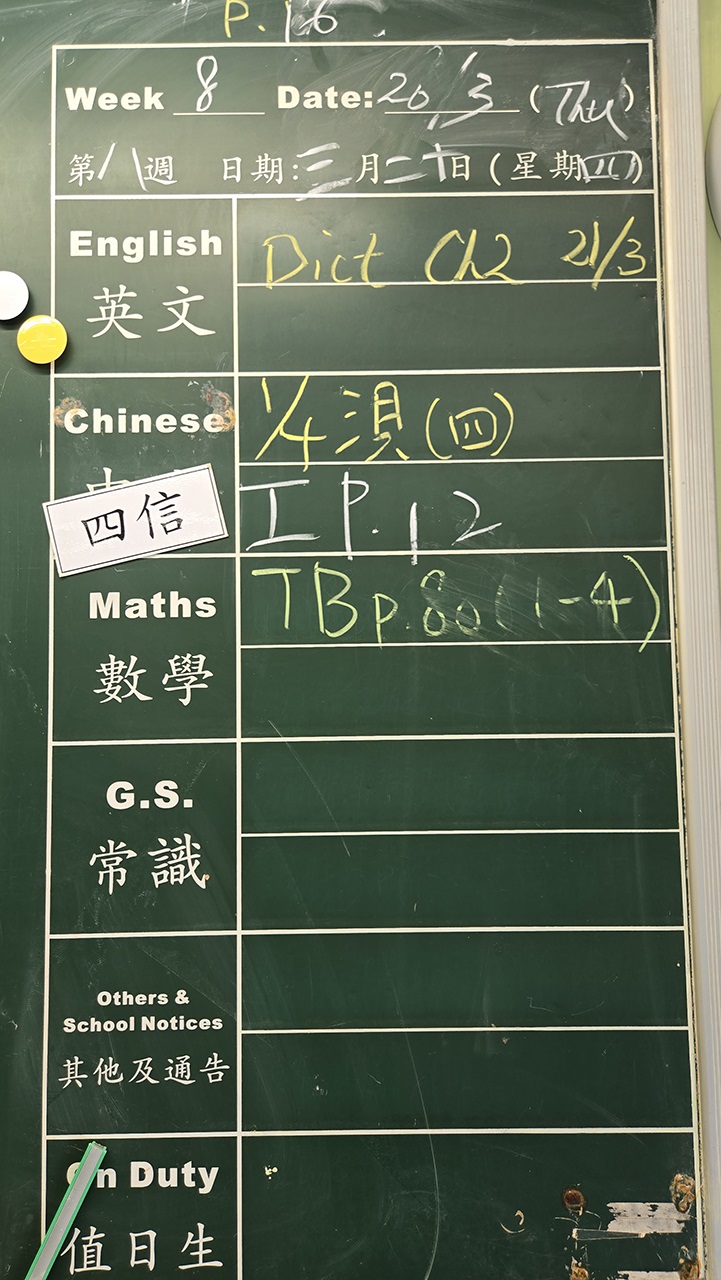 P.16
Week 8 Date: 20/3 (Thu)
第八週 日期:三月二十日(星期四)
English Dict Ch2 21/3
英文
Chinese 1/4 測(四)
四信 工 P.12
Maths TB p.80(1-4)
數學
G.S.
常識
Others &
School Notices
其他及通告
On Duty
值日生